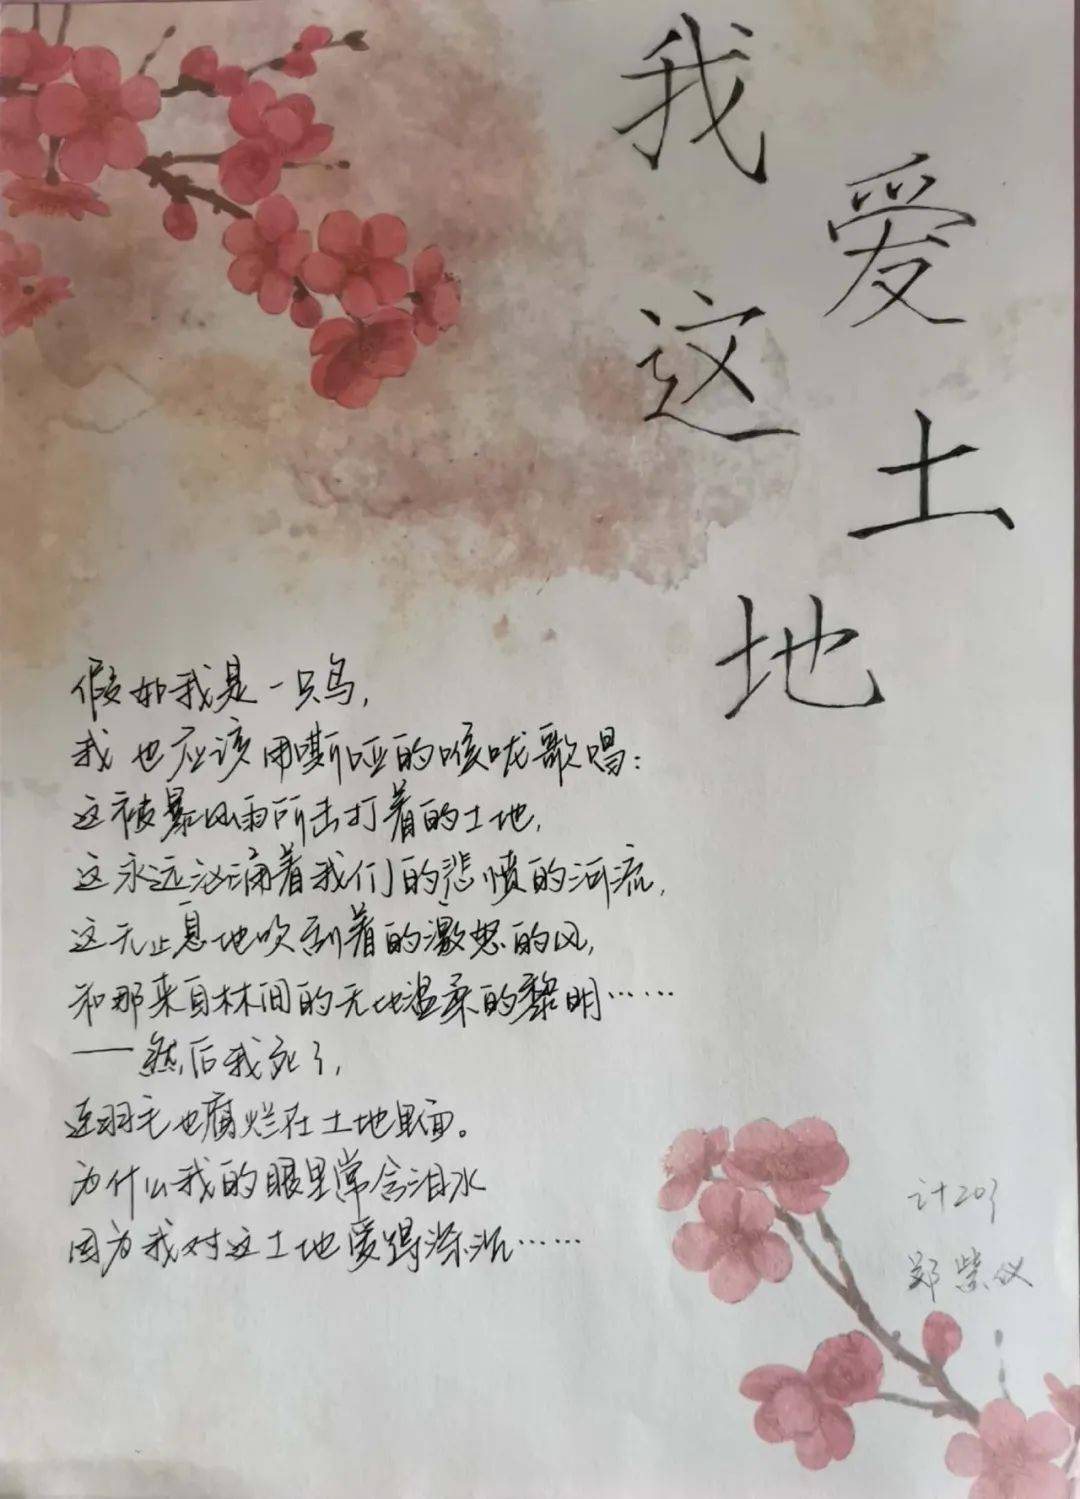 我
爱
这
土
地
假如我是一只鸟,
我也应该用嘶哑的喉咙歌唱:
这被暴风雨所击打着的土地,
这永远汹涌着我们的悲愤的河流,
这无止息地吹刮着的激怒的风,
和那来自林间的无比温柔的黎明……
——然后我死了,
连羽毛也腐烂在土地里面。
为什么我的眼里常含泪水
因为我对这土地爱得深沉……
计203
郑紫仪